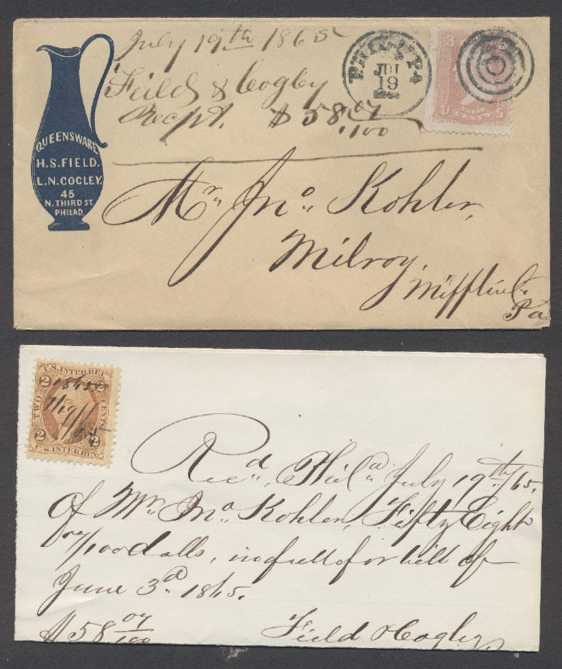 July 19th 1865
Field & Cogley
Recpt. $58 07/100
PHILA PA
JUL
19
3
U S
CENTS
QUEENSWARE
H.S. FIELD.
L.N. COGLEY.
45
N. THIRD ST.
PHILAD.
Mr. Jno. Kohler,
Milroy,
Mifflin Co.
Pa
U.S. INTER. REV.
2 2
TWO CENTS
1865
7/19/65
2 2
U.S. INTER. REV.
Recd. Phila July 19th/65.
Of Mr. Jno. Kohler, Fifty Eight
07/100 dolls, in full for bill of
June 3d 1865.
$58 07/100 Field & Cogley